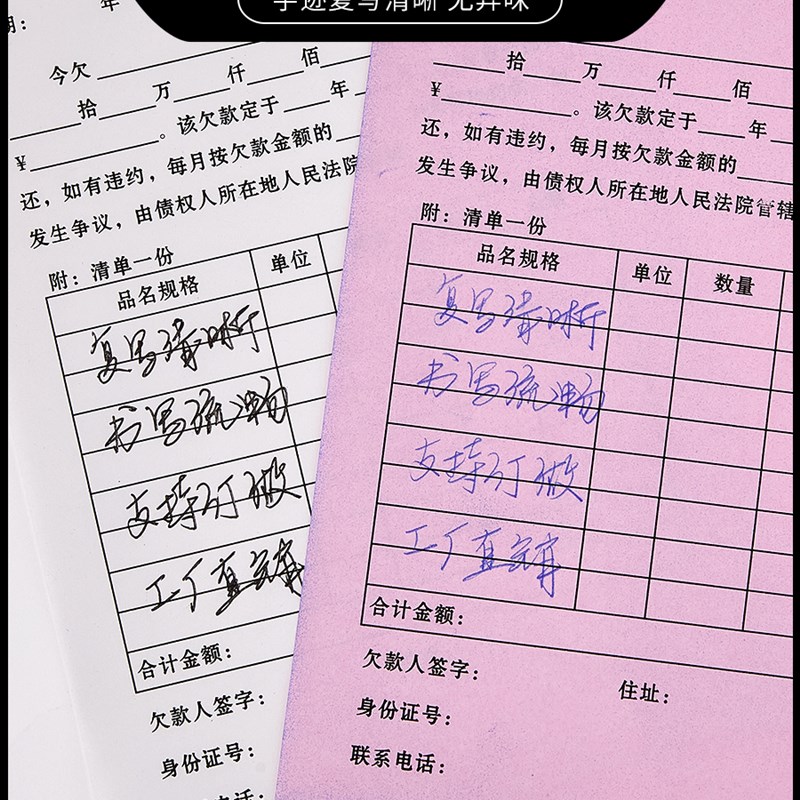 字迹复写清晰 无异味
年
期:
今欠
拾 万 仟 佰
¥ 。该欠款定于 年
还，如有违约，每月按欠款金额的
发生争议，由债权人所在地人民法院
附：清单一份
品名规格 单位
复写清晰
书写流畅
支持订做
工厂直销
合计金额：
欠款人签字：
身份证号：
电话：
拾 万 仟 佰
¥ 。该欠款定于 年
还，如有违约，每月按欠款金额的
发生争议，由债权人所在地人民法院管辖
附：清单一份
品名规格 单位 数量
复写清晰
书写流畅
支持订做
工厂直销
合计金额：
欠款人签字： 住址：
身份证号：
联系电话：